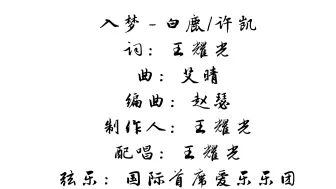 入梦 - 白鹿/许凯
词：王耀光
曲：艾晴
编曲：赵瑟
制作人：王耀光
配唱：王耀光
弦乐：国际首席爱乐乐团